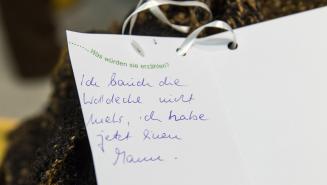 Was würden sie erzählen?
Ich brauch die
Wolldecke nicht
mehr, ich habe
jetzt einen
Mann.